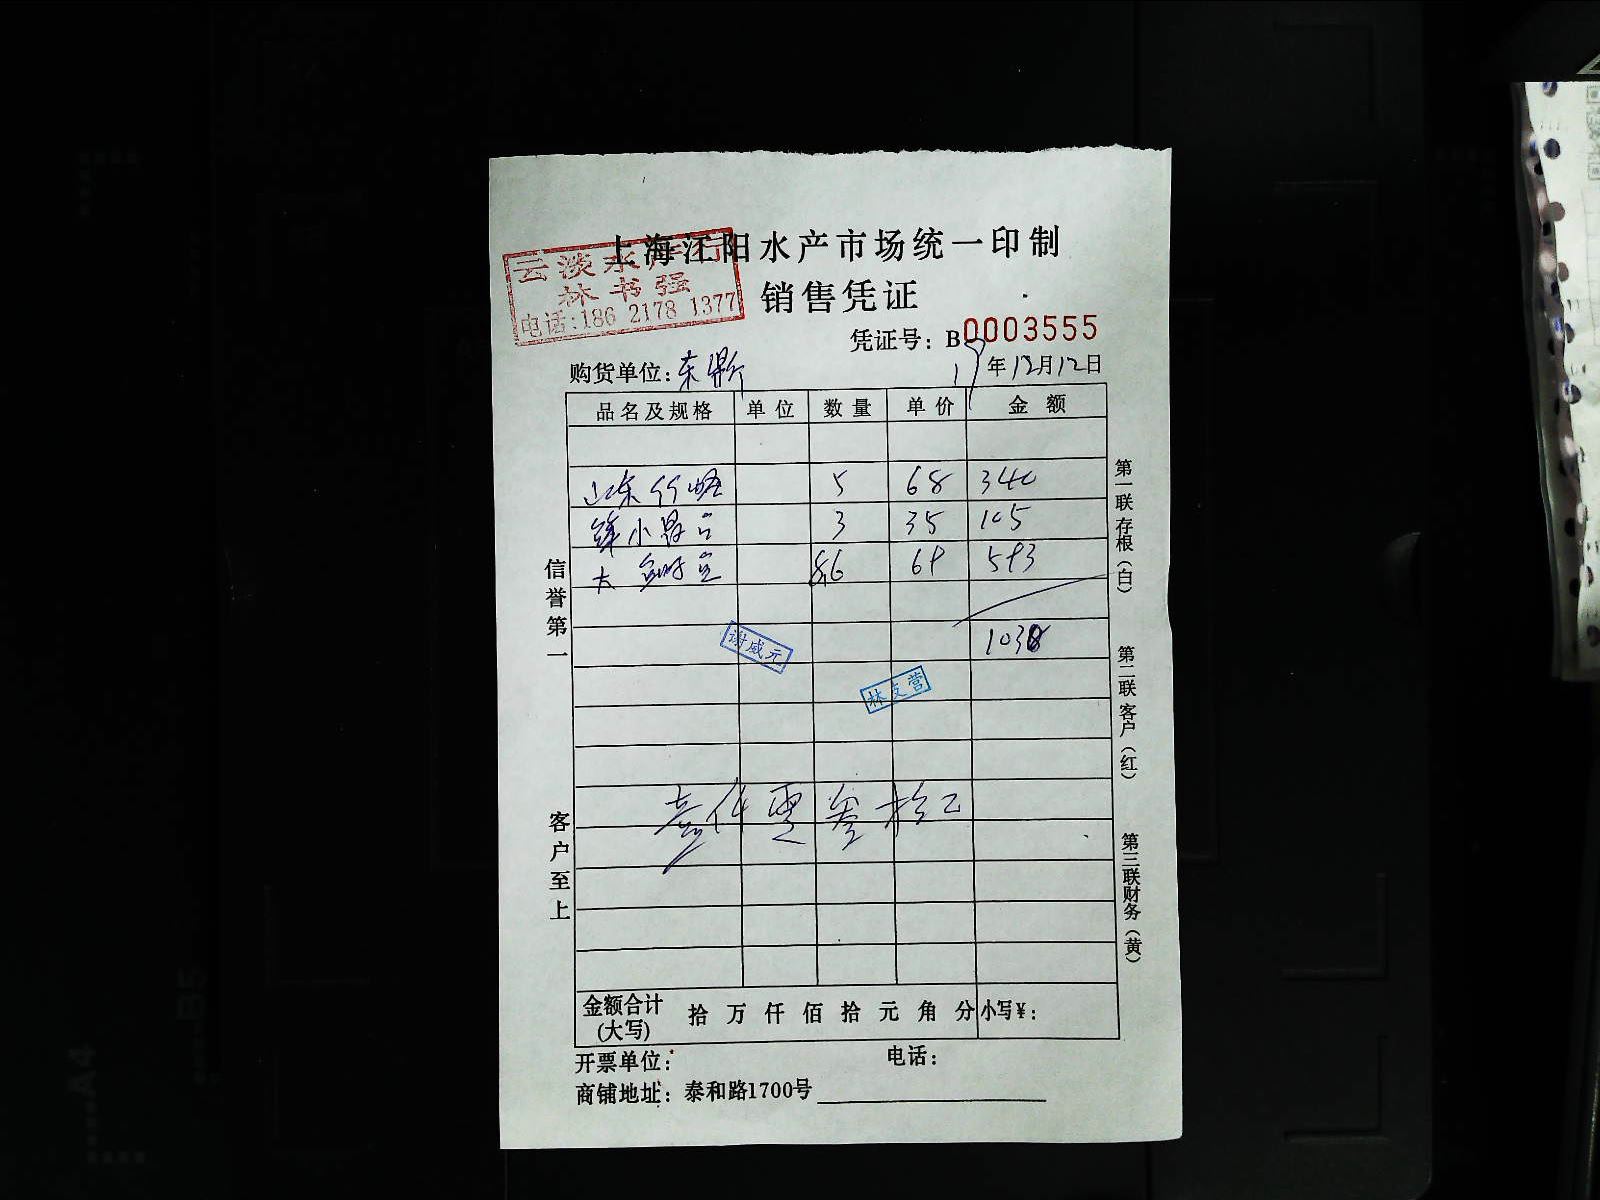 上海江阳水产市场统一印制
云淡水产行
林书强
电话:186 2178 1377
销售凭证
凭证号：B0003555
购货单位：东 年12月12日
品名及规格 单位 数量 单价 金额
山东竹 5 68 340
小 3 35 105
大 8.6 69 593
1038
谢威元
林支营
壹仟零叁拾
信誉第一
客户至上
第一联存根（白）
第二联客户（红）
第三联财务（黄）
金额合计(大写) 拾 万 仟 佰 拾 元 角 分 小写¥：
开票单位： 电话：
商铺地址：泰和路1700号
B5
A4